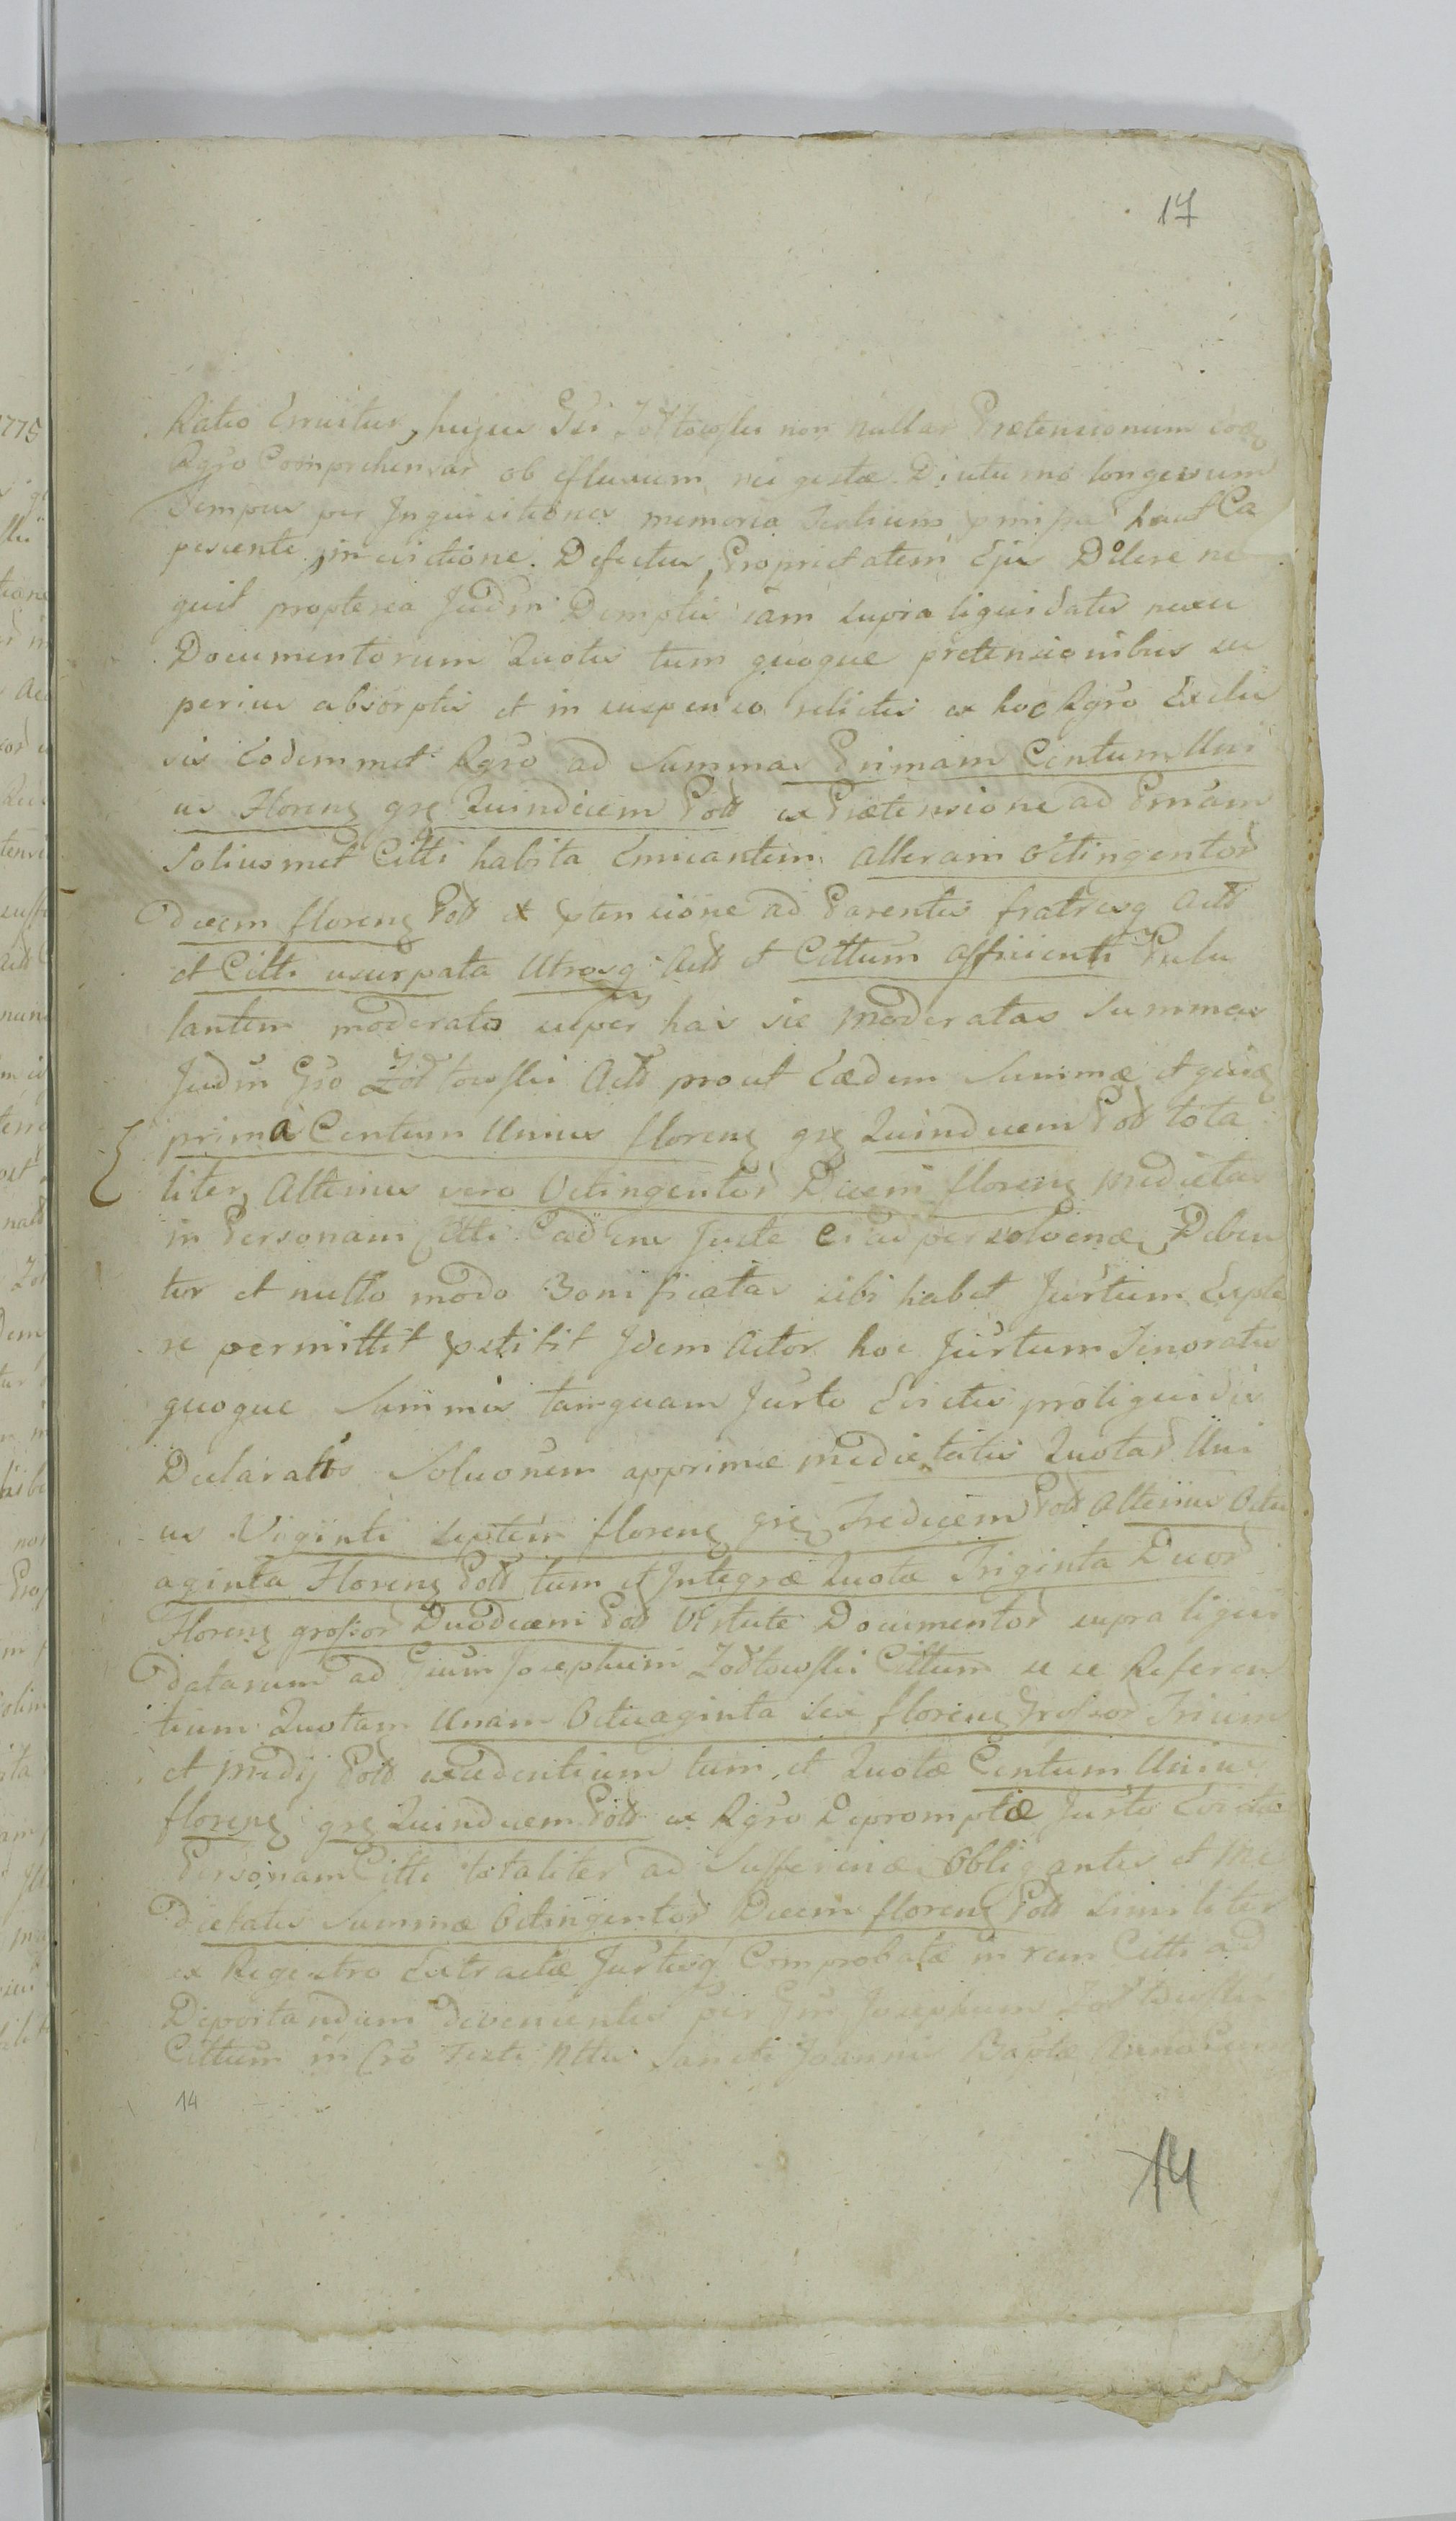 17
Ratio Erruitur, hujus Gsi Żółtowski non nullas Prætensionum
Rgro Comprehensas ob efluxum rei gestæ Diuturno longevum
Tempus per Inquisitiones memoria Testium haut Ca
pescente, in evictione Defectus, Proprietatem Ejus Dolere ne
quit propterea Judm Demptis iam supra liquidatis nexu
Documentorum Quotis tum quoque pretensionibus su
perius absorptis et in suspenso relictis ex hoc Rgro Exclu
sis Eodemmet Rgro ad Summas Primam Centum Uni
us Floreng grg Quindecem Poll ex Prætensione ad
Soliusmet Citti habita Emicantem alteram Octingentor
decem floreng Poll ex ptensione ad Parentes fratresq Actt
et Citti usurpata Utrosq Actt et Cittum afficienti Pulu
lantem moderato sicper has sic moderatas Summas
Judm Gso Żółtowski Actt prout Eædem Summæ et quidg
prima Centum Unius floreng grg Quindecem Poll tota
liter, Alterius vero Octingentor Decem floreng medietas
in Personam Citti Cadens Juste Ei ad persolveng Deben
tur et nullo modo Bonificatas sibi habet Jurtum Exple
re permittit petitit Idem Actor hoc Jurtum Tenoratis
quoque Summis tamquam Jurto Evictis pro liquidis
Declaratis Soluonem apprimæ medietatis Quotar Uni
us Viginti Septem floreng grg Tredecem Poll Alterius Octu
aginta Floreng Poll tum et Integræ Quotæ Triginta Duor
Floreng grossor Duodecem Poll Virtute Documentor supra liqui
datarum ad Gsum Josephum Żółtowski Cittum se se Referen
tium Quotam Unam Octuaginta Sex floreng Grossor Trium
et medij Poll excedentium tum, et Quotæ Centum Unius
floreng grg Quindecem Poll ex Rgro Depromptæ Jurto Evictæ
Personam Citti totaliter ad Sufferendæ Obligantis et Me
dietatis Summæ Octingentor Decem floreng Poll similiter
ex Regestro Extractæ Jurtisq Comprobatæ in rem Citti ad
Deportandum devenientis per Gsm Josephum Żółtowski
Cittum in Cro Festi Nttis Sancti Joannis Baptæ Anno
14
14